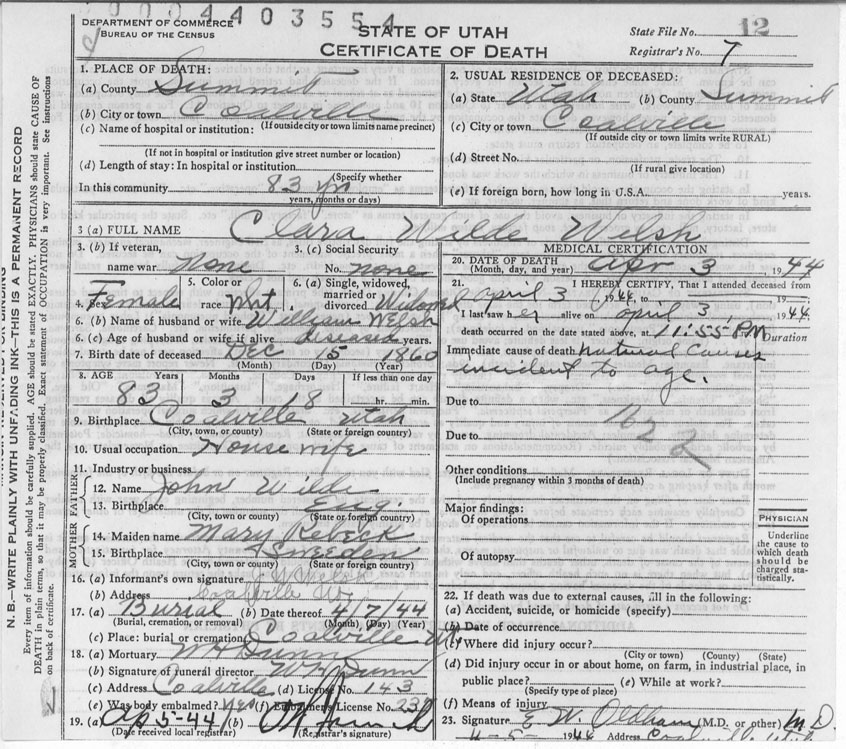 0000 4403554
DEPARTMENT OF COMMERCE
BUREAU OF THE CENSUS
STATE OF UTAH
CERTIFICATE OF DEATH
State File No. 12
Registrar's No. 7
1. PLACE OF DEATH:
(a) County Summit
(b) City or town Coalville
(c) Name of hospital or institution: (If outside city or town limits name precinct)
(If not in hospital or institution give street number or location)
(d) Length of stay: In hospital or institution
(Specify whether
In this community 83 yrs
years, months or days)
2. USUAL RESIDENCE OF DECEASED:
(a) State Utah (b) County Summit
(c) City or town Coalville
(If outside city or town limits write RURAL)
(d) Street No.
(If rural give location)
(e) If foreign born, how long in U.S.A. years.
3 (a) FULL NAME Clara Wilde Welsh
3. (b) If veteran, name war None
3. (c) Social Security No. none
4. Sex Female
5. Color or race Wht.
6. (a) Single, widowed, married or divorced Widowed
6. (b) Name of husband or wife William Welsh
6. (c) Age of husband or wife if alive diseased years.
7. Birth date of deceased Dec 15 1860
(Month) (Day) (Year)
8. AGE Years Months Days If less than one day
83 3 18 hr. min.
9. Birthplace Coalville Utah
(City, town, or county) (State or foreign country)
10. Usual occupation House wife
11. Industry or business
FATHER
12. Name John Wilde
13. Birthplace Eng.
(City, town or county) (State or foreign country)
MOTHER
14. Maiden name Mary Rebeck
15. Birthplace Sweeden
(City, town or county) (State or foreign country)
16. (a) Informant's own signature
(b) Address Coalville
17. (a) Burial (b) Date thereof 4/7/44
(Burial, cremation, or removal) (Month) (Day) (Year)
(c) Place: burial or cremation Coalville Ut
18. (a) Mortuary W H Dunn
(b) Signature of funeral director W H Dunn
(c) Address Coalville (d) License No. 143
(e) Was body embalmed? Yes (f) Embalmer's License No. 231
19. (a) Ap 5-44 (b)
(Date received local registrar) (Registrar's signature)
MEDICAL CERTIFICATION
20. DATE OF DEATH
(Month, day, and year) Apr 3, 1944
21. I HEREBY CERTIFY, That I attended deceased from
April 3 1944, to , 19 ;
I last saw her alive on April 3, 1944.
death occurred on the date stated above, at 11:55 PM
Duration
Immediate cause of death natural causes
incident to age.
Due to
162 2
Due to
Other conditions
(Include pregnancy within 3 months of death)
Major findings:
Of operations
Of autopsy
PHYSICIAN
Underline
the cause to
which death
should be
charged sta-
tistically.
22. If death was due to external causes, fill in the following:
(a) Accident, suicide, or homicide (specify)
(b) Date of occurrence
(c) Where did injury occur?
(City or town) (County) (State)
(d) Did injury occur in or about home, on farm, in industrial place, in
public place? (e) While at work?
(Specify type of place)
(f) Means of injury
23. Signature E. W. Oldham (M.D. or other) M.D.
4-5- 1944 Address Coalville Utah
N. B.—WRITE PLAINLY WITH UNFADING INK—THIS IS A PERMANENT RECORD
Every item of information should be carefully supplied. AGE should be stated EXACTLY. PHYSICIANS should state CAUSE OF
DEATH in plain terms, so that it may be properly classified. Exact statement of OCCUPATION is very important. See instructions
on back of certificate.